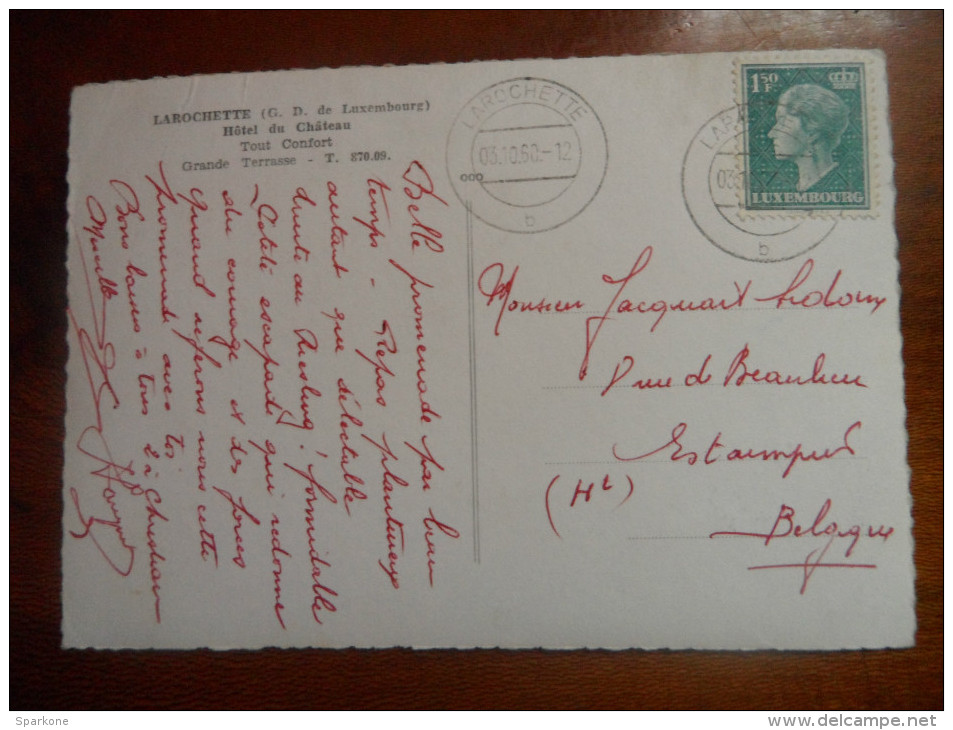 LAROCHETTE (G. D. de Luxembourg)
Hôtel du Château
Tout Confort
Grande Terrasse - T. 870.09.
Belle promenade par beau
temps - Repas plantureux
autant que délectable
truite au Riesling! formidable
escapade qui redonne
du courage et des forces
Quand referons nous cette
promenade avec toi
Bons baisers à tous 2 à Christian
LAROCHETTE
03.10.60.-12
b
1.50
F.
LUXEMBOURG
b
Monsieur Jacquart
rue de Beaulieu
Estaimpuis
(Ht)
Belgique
Sparkone
delcampe.net